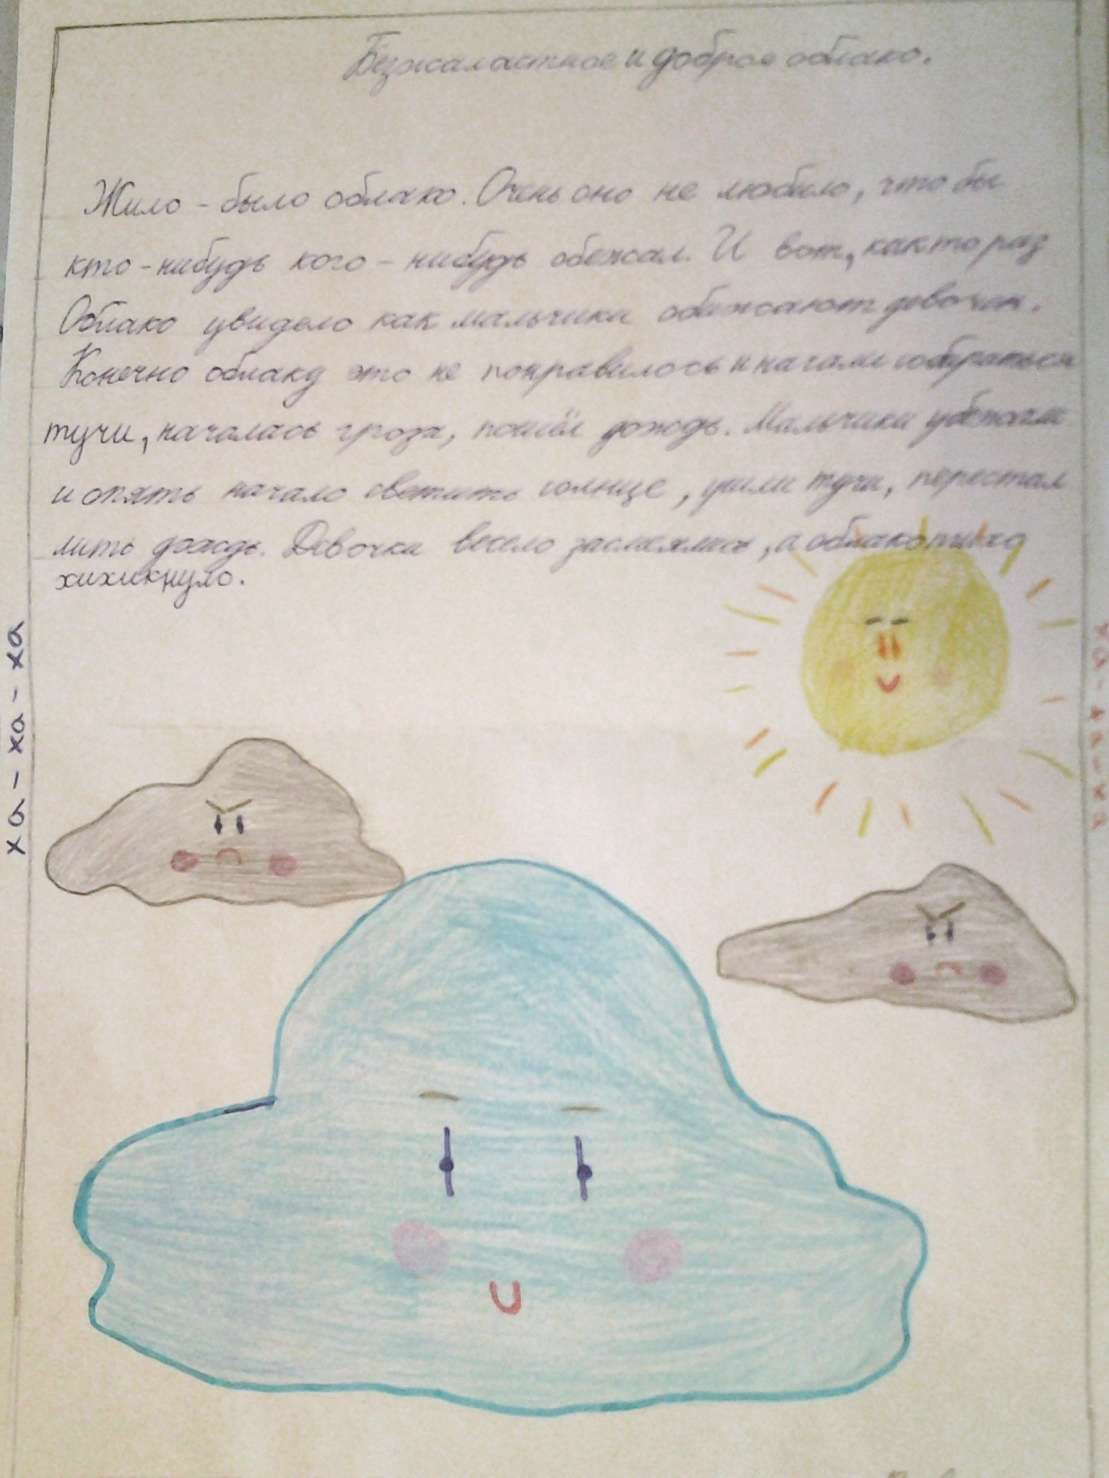 Безжаластное и доброе облако.
Жило - было облако. Очень оно не любило, что бы
кто - нибудь кого - нибудь обежал. И вот, как то раз
Облако увидело как мальчики обижают девочек.
Конечно облаку это не понравилось и начали собраться
тучи, началась гроза, пошёл дождь. Мальчики убежали
и опять начало светить солнце, ушли тучи, перестал
лить дождь. Девочки весело засмеялись, а облако тихо
хихикнуло.
ха - ха - ха
ха - ха - ха